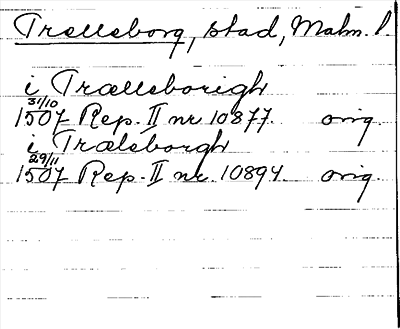 Trelleborg, stad, Malm. l.
i Trælleborigh
31/10 1507 Rep. II nr 10877. orig.
i Trælborgh
29/11 1507 Rep. II nr. 10894. orig.